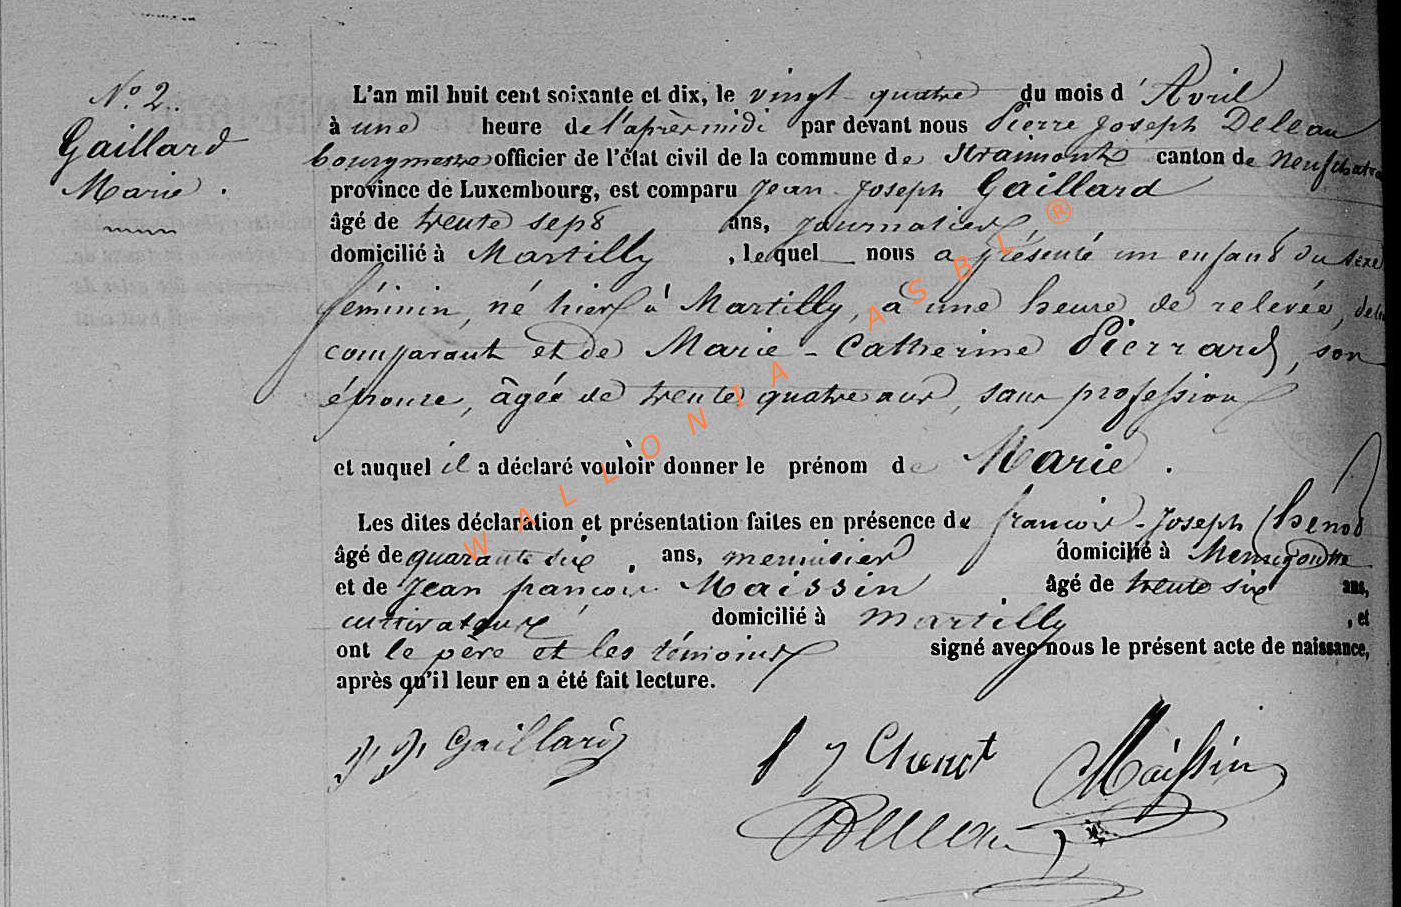 N° 2.
Gaillard
Marie.
L'an mil huit cent soixante et dix, le vingt-quatre du mois d'Avril
à une heure de l'après midi par devant nous Pierre Joseph Deleau
bourgmestre officier de l'état civil de la commune de Straimont canton de Neufchateau
province de Luxembourg, est comparu Jean-Joseph Gaillard
âgé de trente sept ans, journalier,
domicilié à Martilly, lequel nous a présenté un enfant du sexe
féminin, né hier à Martilly, à une heure de relevée, de lui
comparant et de Marie-Catherine Pierrard, son
épouse, âgée de trente quatre ans, sans profession
et auquel il a déclaré vouloir donner le prénom de Marie.
Les dites déclaration et présentation faites en présence de françois-Joseph Chenot
âgé de quarante six ans, menuisier domicilié à
et de Jean françois Maissin âgé de trente six ans,
cultivateur, domicilié à Martilly, et
ont le père et les témoins signé avec nous le présent acte de naissance,
après qu'il leur en a été fait lecture.
J. J. Gaillard
f J Chenot Maissin
Deleau
WALLONIA ASBL ®